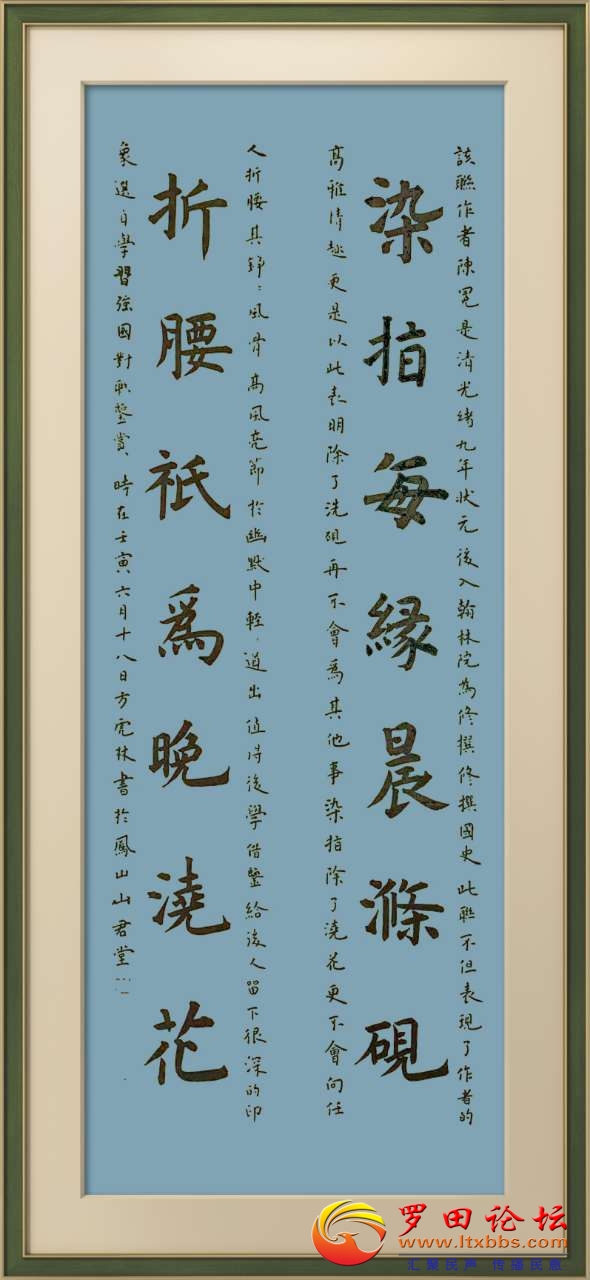 該聯作者陳冕是清光緒九年狀元後入翰林院為修撰修撰國史此聯不但表現了作者的
染指每緣晨滌硯
高雅情趣更是以此表明除了洗硯再不會為其他事染指除了澆花更不會向任
人折腰其錚錚風骨高風亮節於幽默中輕輕道出值得後學借鑒給後人留下很深的印
折腰祇為晚澆花
象選自學習強國對聯鑒賞時在壬寅六月十八日方 林書於鳳山山君堂
罗田论坛
www.ltxbbs.com
汇聚民声 传播民意